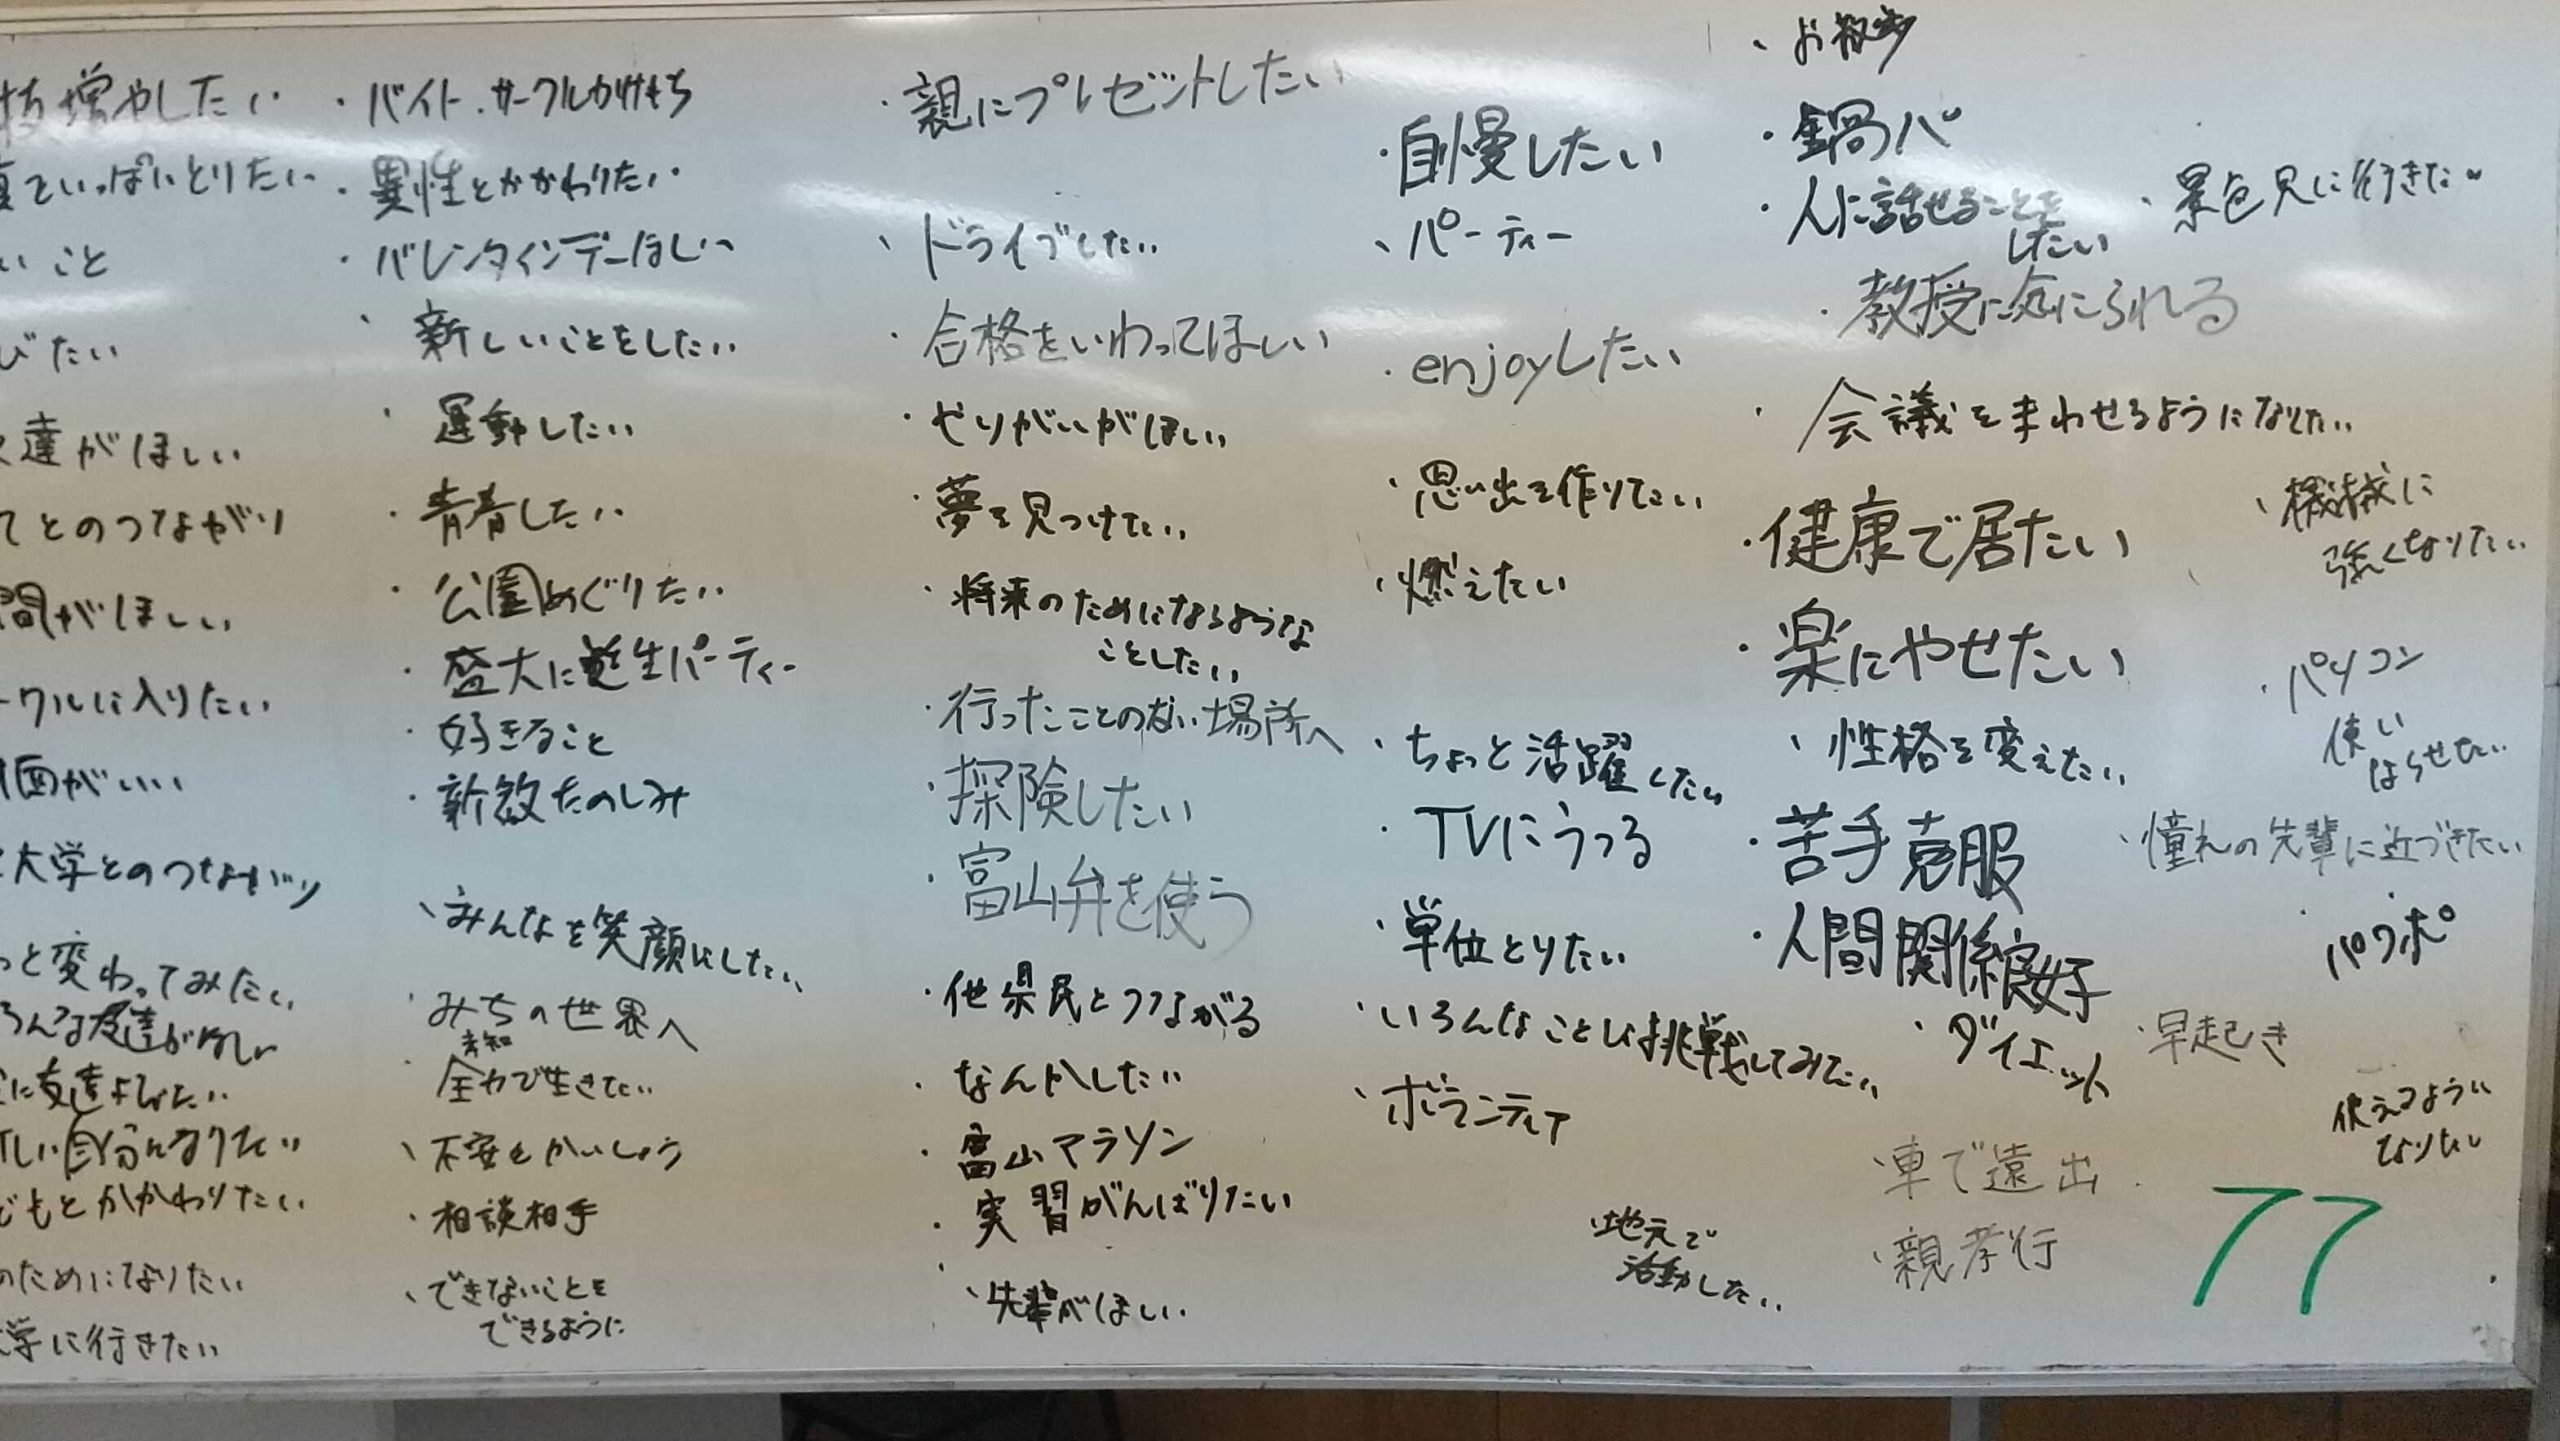 増やしたい
いっぱいとりたい
いこと
びたい
達がほしい
てとのつながり
間がほしい
ークルに入りたい
面がいい
大学とのつながり
っと変わってみたい
ろんな友達がほしい
に友達よびたい
しい自分になりたい
どもとかかわりたい
のためになりたい
学に行きたい
・バイト、サークルかけもち
・異性とかかわりたい
・バレンタインデーほしい
・新しいことをしたい
・運動したい
・青春したい
・公園めぐりたい
・盛大に誕生パーティー
・好きなこと
・新歓たのしみ
・みんなを笑顔にしたい
・みちの世界へ
未知
・全力で生きたい
・不安をかいしょう
・相談相手
・できないことを
できるように
・親にプレゼントしたい
・ドライブしたい
・合格をいわってほしい
・やりがいがほしい
・夢を見つけたい
・将来のためになるような
ことしたい
・行ったことのない場所へ
・探険したい
・富山弁を使う
・他県民とつながる
・なんかしたい
・富山マラソン
・実習がんばりたい
・先輩がほしい
・自慢したい
・パーティー
・enjoyしたい
・思い出を作りたい
・燃えたい
・ちょっと活躍したい
・TVにうつる
・単位とりたい
・いろんなことに挑戦してみたい
・ボランティア
・地元で
活動したい
・お散歩
・鍋パ
・人に話せることを
したい
・教授に気にられる
・会議をまわせるようになりたい
・健康で居たい
・楽にやせたい
・性格を変えたい
・苦手克服
・人間関係良好
・ダイエット
・車で遠出
・親孝行
・景色見に行きたい
・機械に
強くなりたい
・パソコン
使い
ならせたい
・憧れの先輩に近づきたい
・パワポ
・早起き
使えるように
なりたい
77